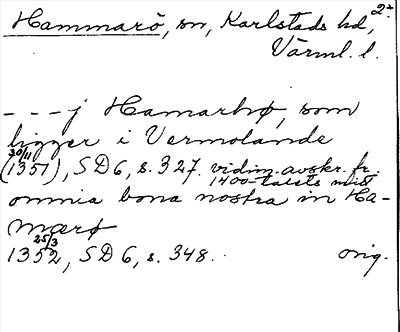 Hammarö, sn, Karlstads hd, 2.
Värml. l.
- - - j Hamarhø, som
ligger i Vermolande
30/11
(1351), SD 6, s. 327. vidim. avskr. fr.
1400-talets mitt
omnia bona nostra in Ha-
mærø
25/3
1352, SD 6, s. 348. orig.